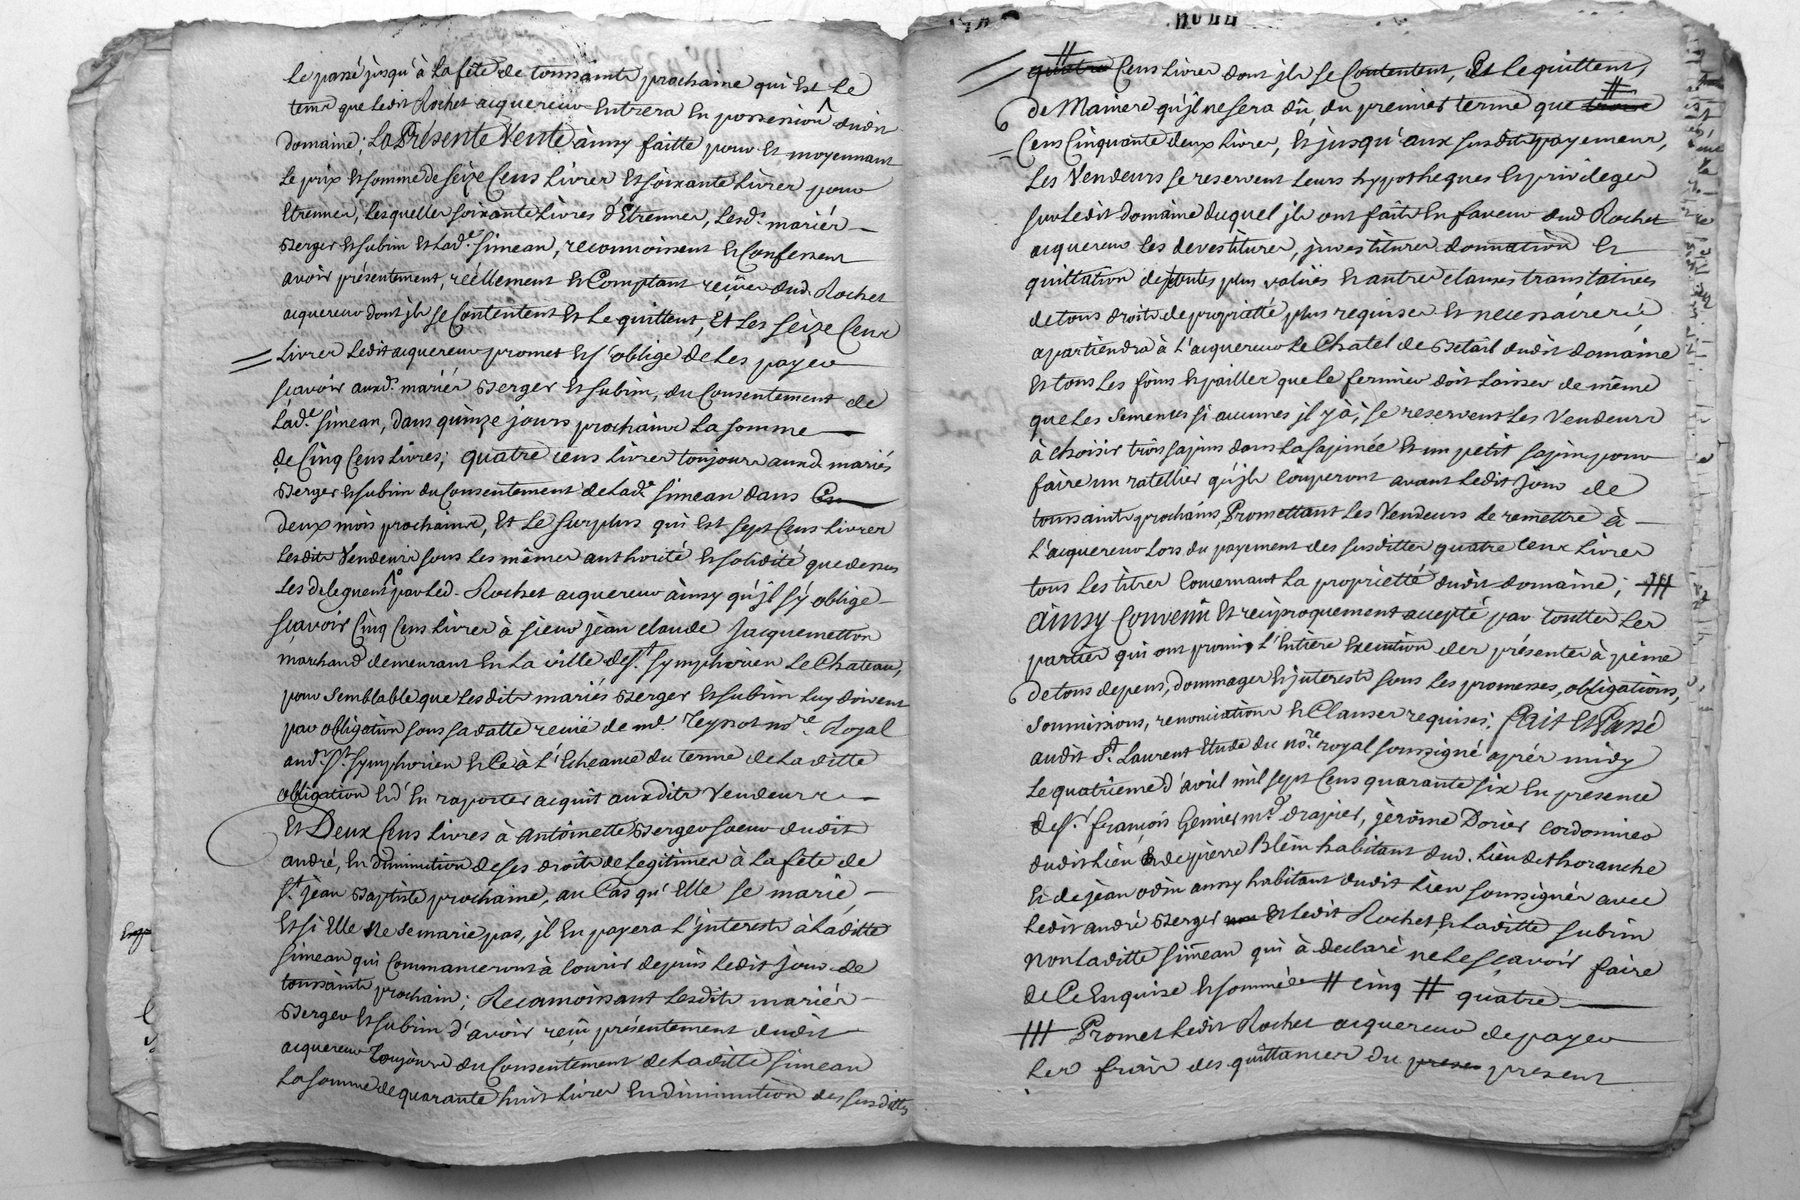 le passé jusqu'à la fête de toussaints prochaine qui est le
tems que ledit Rochet acquereur entrera en possession dudit
domaine; La Présente Vente ainsy faitte pour et moyennant
le prix et somme de seize Cens livres et soixante livres pour
Etrennes, lesquelles soixante livres d'Etrennes, lesd.s mariés
Berger et subrin et lad.e simean, reconnoissent et Confessent
avoir présentement, réellement et Comptant reçües dud. Rochet
acquereur dont jls se Contentent et le quittent, Et Les seize Cens
livres ledit acquereur promet et s'oblige de les payer
sçavoir auxd.s mariés Berger et subrin, du Consentement de
lad.e simean, dans quinze jours prochains la somme
de Cinq Cens livres; quatre cens livres toujours auxd. mariés
Berger et subrin du Consentement de lad.e simean dans
deux mois prochains, et le surplus qui est sept Cens livres
lesdits Vendeurs sous les mêmes authorité et solidité que dessus
les deleguent par led. Rochet acquereur ainsy qu'jl s'y oblige
sçavoir Cinq Cens livres à sieur jean claude Jacquemetton
marchand demeurant en la ville de s.t symphorien le Chateau,
pour semblable que lesdits mariés Berger et subrin luy doivent
par obligation sous sa datte reçüe de m.e Teyssot no.re Royal
aud. s.t symphorien et Ce à l'Echeance du terme de laditte
obligation et d'En raporter acquit auxdits Vendeurs
Et Deux Cens livres à antoinette Berger soeur dudit
andré, En diminution de ses droits de legitimes à la fête de
s.t jean Baptiste prochaine, au Cas qu'Elle se marie,
Et si Elle Ne se marie pas, jl En payera l'jnterests à laditte
simean qui Commanceront à Courir depuis ledit jour de
toussaints prochain; Reconnoissant lesdits mariés
Berger et subrin d'avoir reçü présentement dudit
acquereur Toujours du Consentement de laditte simean
la somme de quarante huit livres En diminution des susdittes
quatre Cens livres dont jls se Contentent, Et le quittent,
de Maniere qu'jl ne sera dû, du premier terme que trois
Cens Cinquante deux livres, Et jusqu'aux susdits payemens,
Les Vendeurs se reservent leurs hypotheques et privileges
sur ledit domaine duquel jls ont faits En faveur dud Rochet
acquereur les devestitures, jnvestitures donnation Et
quittation de toutes plus values et autres clauses translatives
de tous droits de proprieté plus requises et necessaires;
apartiendra à l'acquereur le Chatel de Betail dudit domaine
et tous les foins et pailles que le fermier doit laisser de même
que les semences si aucunes jl y à, se reservent les Vendeurs
à choisir trois sapins dans la sapinée et un petit sapin pour
faire un ratellier qu'jls Couperont avant ledit jour de
toussaints prochains, Promettant les Vendeurs de remettre à
l'acquereur lors du payement des susdittes quatre Cens livres
tous les titres Concernant la proprieté dudit domaine; ///
ainsy Convenü Et reciproquement accepté par touttes les
parties qui ont promis l'Entiere Execution des présentes à peine
de tous depens, dommages et jnterests sous les promesses, obligations,
soumissions, renonciations et Clauses requises; Fait et Passé
audit s.t Laurent Etude du no.re royal soussigné après midy
le quatrième d'avril mil sept Cens quarante six En presence
de s.r françois Genier m.d drapier, jérôme Dorier Cordonnier
dudit lieu et de pierre Blein habitant dud. lieu de thoranche
Et de jean odin aussy habitant dudit lieu soussignés avec
ledit andré Berger et ledit Rochet et laditte subrin
non laditte simean qui à declaré ne le sçavoir faire
de Ce Enquise et sommée # cinq # quatre
/// Promet ledit Rochet acquereur de payer
les frais des quittances du present